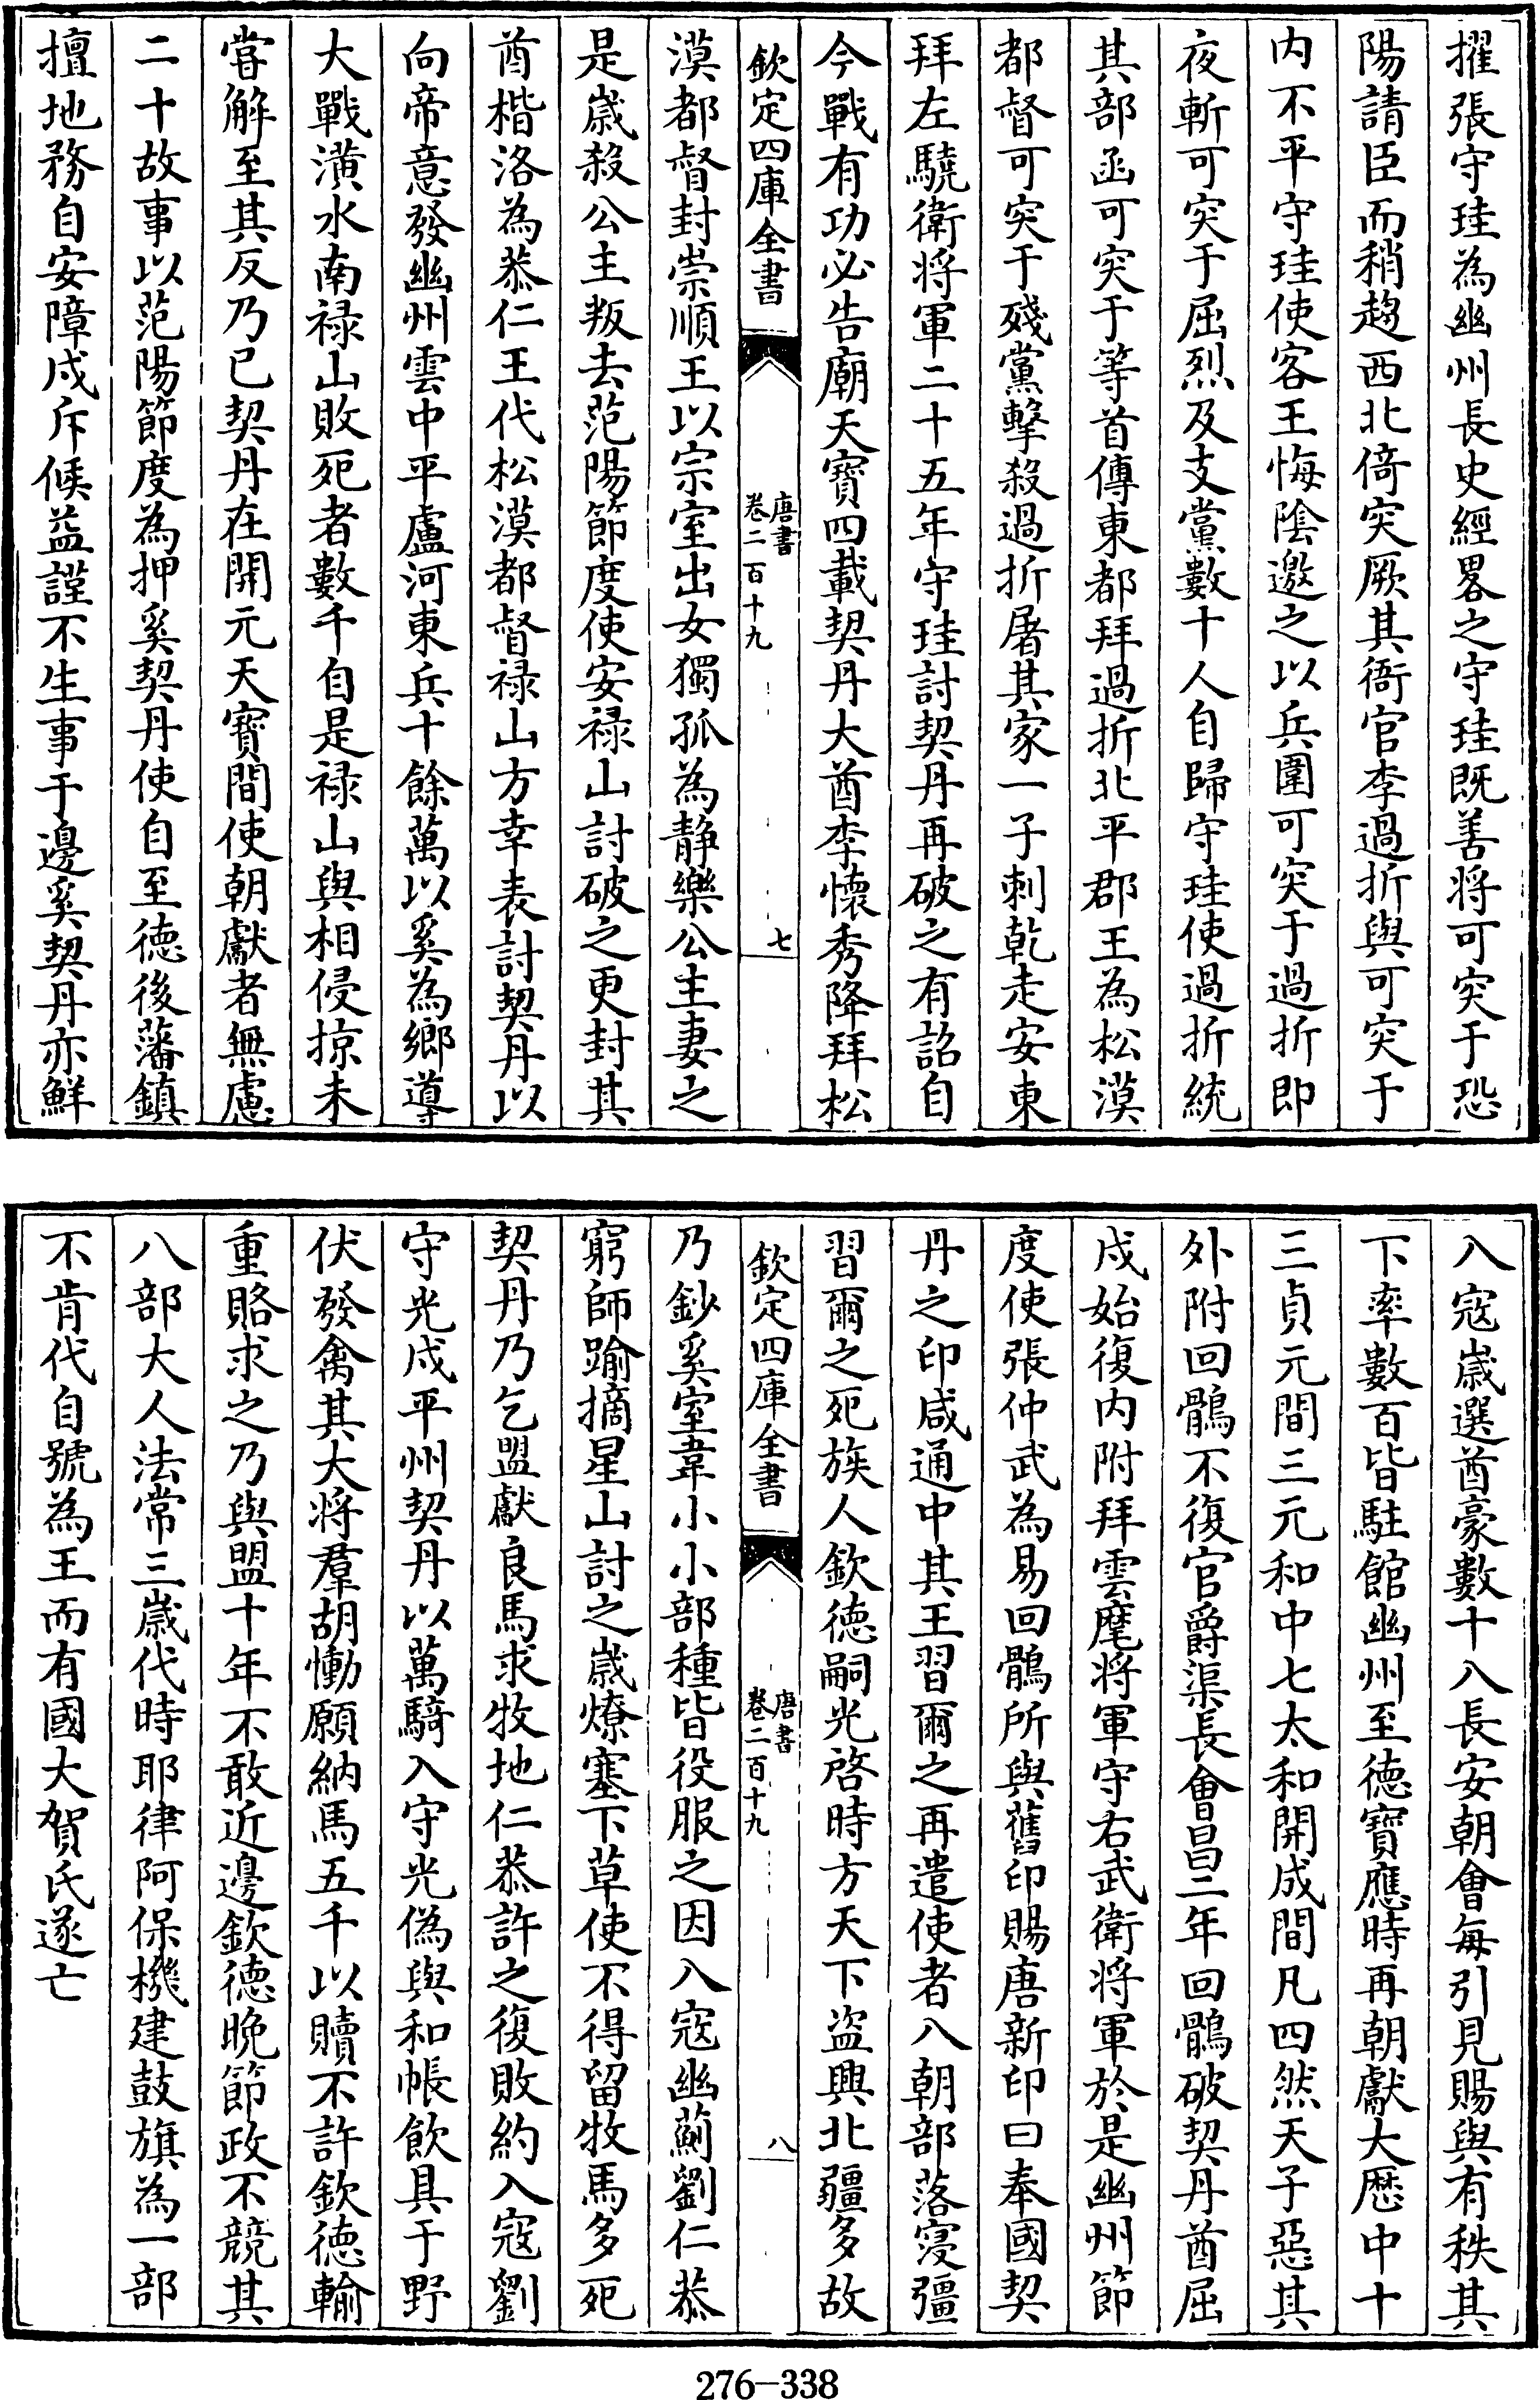 擢張守珪為幽州長史經畧之守珪既善將可突于恐
陽請臣而稍趨西北倚突厥其衙官李過折與可突于
内不平守珪使客王悔陰邀之以兵圍可突于過折即
夜斬可突于屈烈及支黨數十人自歸守珪使過折統
其部函可突于等首傳東都拜過折北平郡王為松漠
都督可突于殘黨擊殺過折屠其家一子刺乾走安東
拜左驍衛將軍二十五年守珪討契丹再破之有詔自
今戰有功必告廟天寶四載契丹大酋李懷秀降拜松
欽定四庫全書
唐書
卷二百十九
七
漠都督封崇順王以宗室出女獨孤為静樂公主妻之
是歲殺公主叛去范陽節度使安禄山討破之更封其
酋楷洛為恭仁王代松漠都督禄山方幸表討契丹以
向帝意發幽州雲中平盧河東兵十餘萬以奚為鄉導
大戰潢水南禄山敗死者數千自是禄山與相侵掠未
嘗解至其反乃已契丹在開元天寶間使朝獻者無慮
二十故事以范陽節度為押奚契丹使自至徳後藩鎮
擅地務自安障戍斥候益謹不生事于邊奚契丹亦鮮
入寇歲選酋豪數十入長安朝會每引見賜與有秩其
下率數百皆駐館幽州至徳寶應時再朝獻大厯中十
三貞元間三元和中七太和開成間凡四然天子惡其
外附回鶻不復官爵渠長會昌二年回鶻破契丹酋屈
戍始復内附拜雲麾將軍守右武衛將軍於是幽州節
度使張仲武為易回鶻所與舊印賜唐新印曰奉國契
丹之印咸通中其王習爾之再遣使者入朝部落寖彊
習爾之死族人欽徳嗣光啓時方天下盜興北疆多故
欽定四庫全書
唐書
卷二百十九
八
乃鈔奚室韋小小部種皆役服之因入寇幽薊劉仁恭
窮師踰摘星山討之歲燎塞下草使不得留牧馬多死
契丹乃乞盟獻良馬求牧地仁恭許之復敗約入寇劉
守光戍平州契丹以萬騎入守光偽與和帳飲具于野
伏發禽其大將羣胡慟願納馬五千以贖不許欽徳輸
重賂求之乃與盟十年不敢近邊欽徳晚節政不競其
八部大人法常三歲代時耶律阿保機建鼓旗為一部
不肯代自號為王而有國大賀氏遂亡
276-338